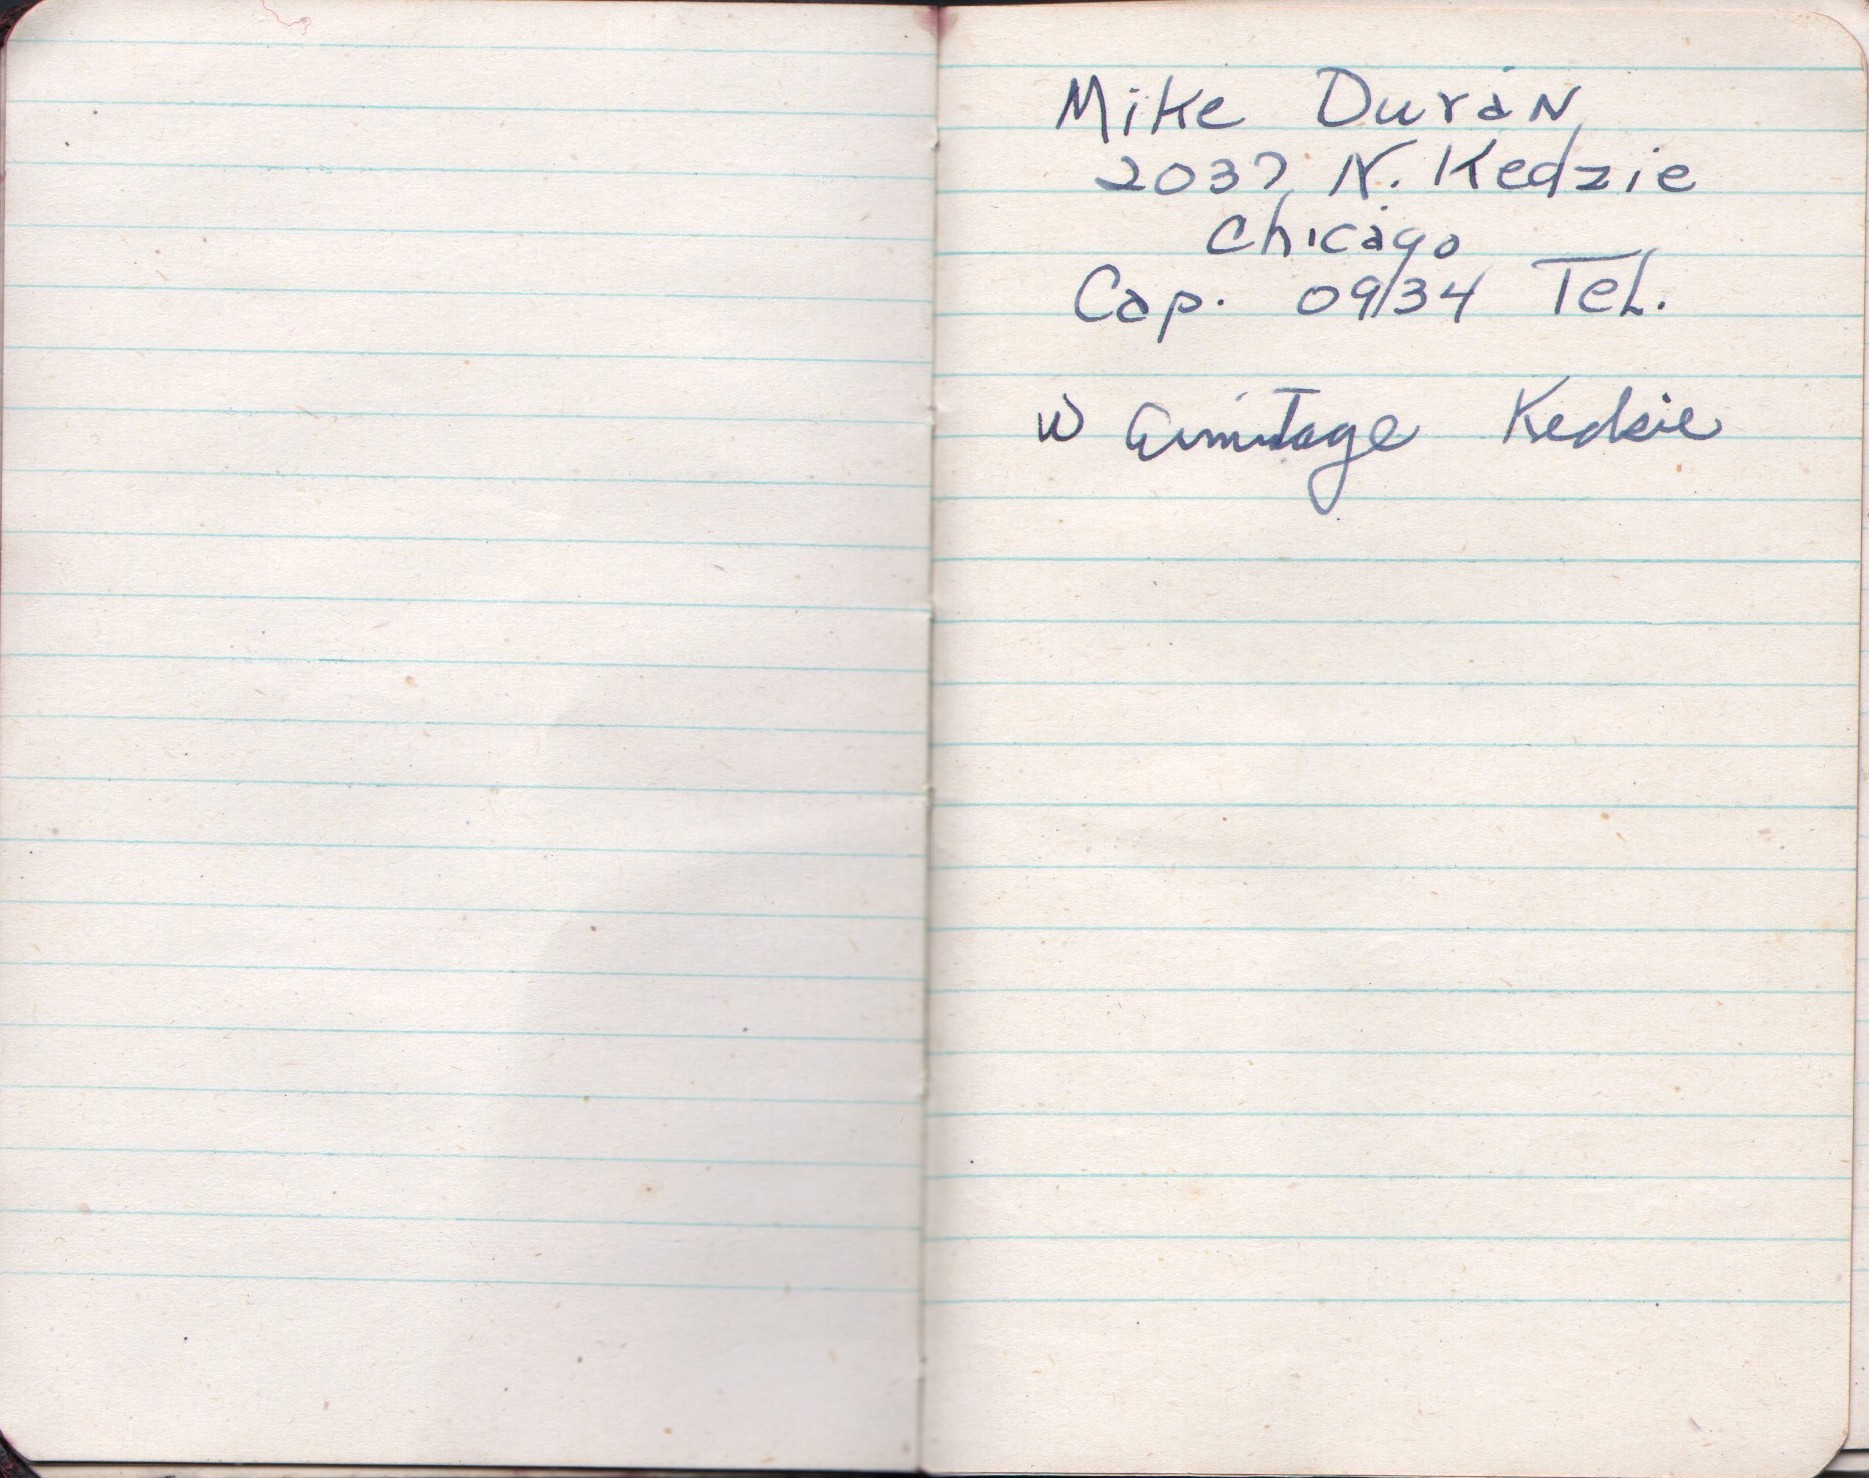 Mike Duran
2037 N. Kedzie
Chicago
Cap. 09134 Tel.
W Ermitage Kedsie